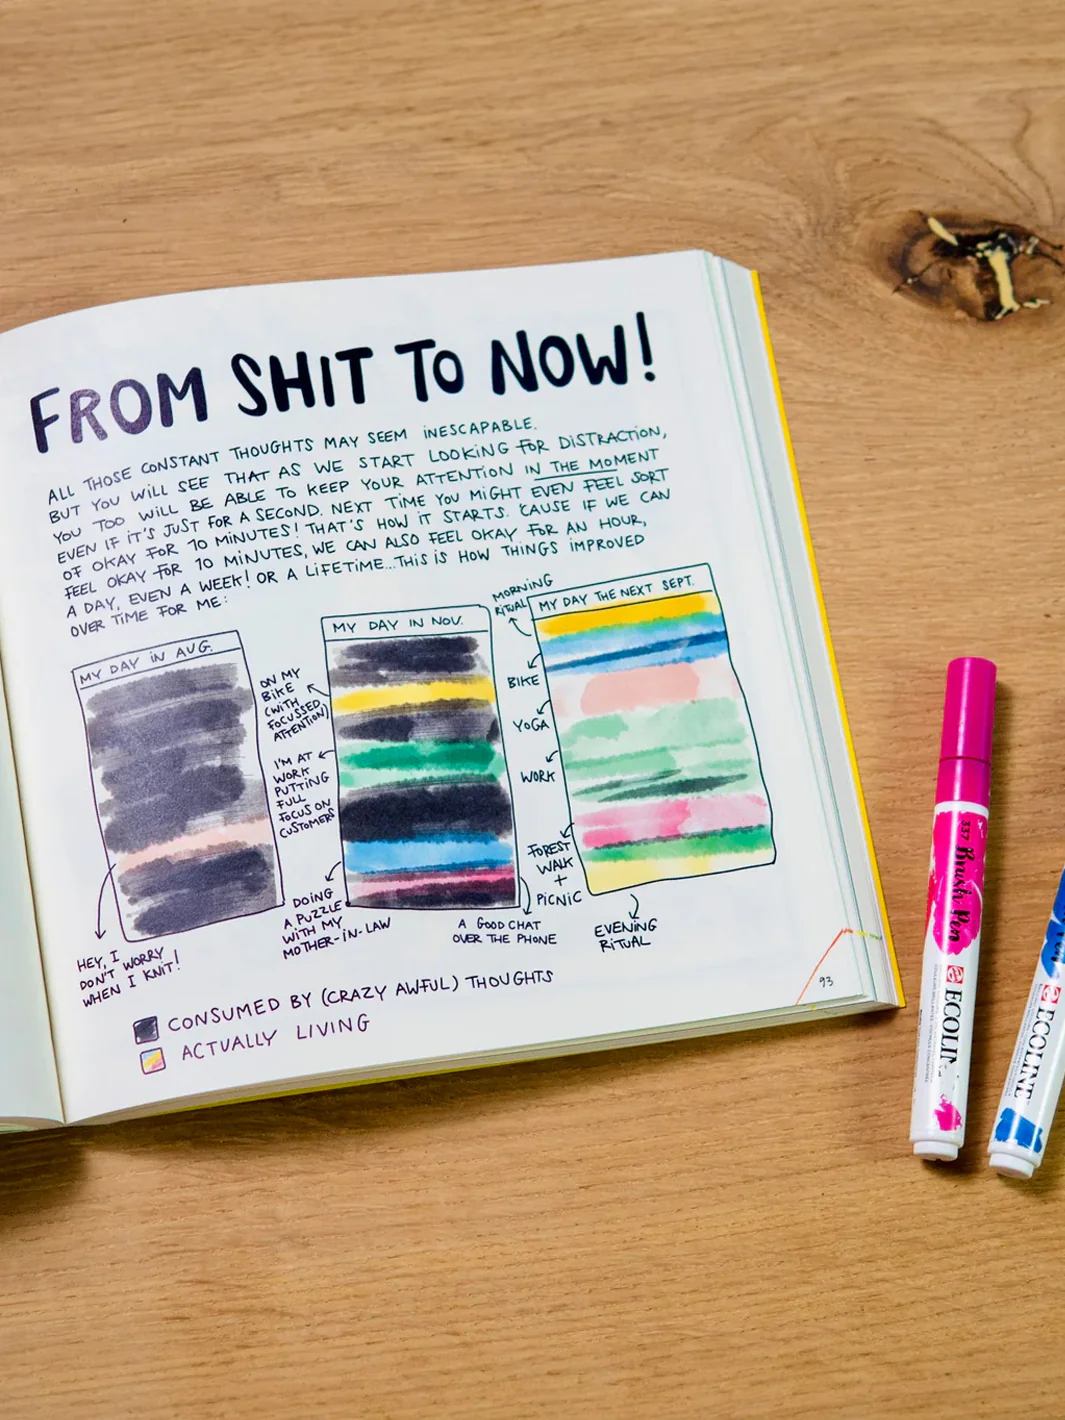 FROM SHIT TO NOW!
ALL THOSE CONSTANT THOUGHTS MAY SEEM INESCAPABLE.
BUT YOU WILL SEE THAT AS WE START LOOKING FOR DISTRACTION,
YOU TOO WILL BE ABLE TO KEEP YOUR ATTENTION IN THE MOMENT
EVEN IF IT'S JUST FOR A SECOND. NEXT TIME YOU MIGHT EVEN FEEL SORT
OF OKAY FOR 10 MINUTES! THAT'S HOW IT STARTS. 'CAUSE IF WE CAN
FEEL OKAY FOR 10 MINUTES, WE CAN ALSO FEEL OKAY FOR AN HOUR,
A DAY, EVEN A WEEK! OR A LIFETIME...THIS IS HOW THINGS IMPROVED
OVER TIME FOR ME:
MY DAY IN AUG.
HEY, I
DON'T WORRY
WHEN I KNIT!
MY DAY IN NOV.
ON MY
BIKE
(WITH
FOCUSSED
ATTENTION)
I'M AT
WORK
PUTTING
FULL
FOCUS ON
CUSTOMERS
DOING
A PUZZLE
WITH MY
MOTHER-IN-LAW
A GOOD CHAT
OVER THE PHONE
MY DAY THE NEXT SEPT.
MORNING
RITUAL
BIKE
YOGA
WORK
FOREST
WALK
+
PICNIC
EVENING
RITUAL
CONSUMED BY (CRAZY AWFUL) THOUGHTS
ACTUALLY LIVING
93
337 Brush Pen
ECOLI
Pen
ECOLINE